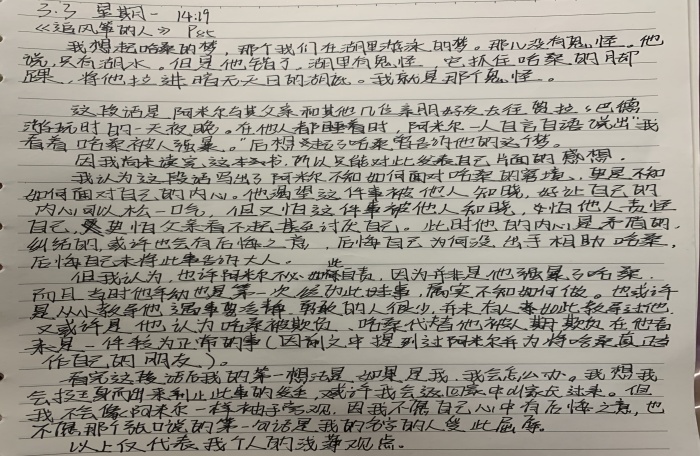 3.3 星期一 14:19
《追风筝的人》 P86
我想起哈桑的梦,那个我们在湖里游泳的梦。那儿没有鬼怪。他
说,只有湖水。但是他错了。湖里有鬼怪,它抓住哈桑的脚
踝,将他拉进暗无天日的湖底。我就是那个鬼怪。
这段话是阿米尔与其父亲和其他几位亲朋好友去往贾拉拉巴德
游玩时的一天夜晚。在他人都睡着时,阿米尔一人自言自语说出"我
看着哈桑被人强暴。"后想起了哈桑告诉他的这个梦。
因我尚未读完这本书,所以只能对此发表自己片面的感想。
我认为这段话写出了阿米尔不知如何面对哈桑的窘境,更是不知
如何面对自己的内心。他渴望这件事被他人知晓,好让自己的
内心可以松一口气,但又怕这件事被他人知晓,怕他人责怪
自己,更怕父亲看不起甚至讨厌自己。此时他的内心是矛盾的,
纠结的,或许也会有后悔之意,后悔自己为何没出手相助哈桑,
后悔自己未将此事告诉大人。
但我认为,也许阿米尔不必如此,因为并非是他强暴了哈桑
而且当时他年幼也是第一次经历此事,属实不知如何做。也或许
是从小教导他遇事要冷静,勇敢的人很少,并未有人如此教导过他。
又或许是他认为哈桑被欺负,哈桑代替他被人欺负在他看
来是一件极为正常的事(因前文中提到过阿米尔并为将哈桑真正当
作自己的朋友)。
看完这段话后我的第一想法是,如果是我,我会怎么办。我想我
会挺身而出来制止此事的发生,或许我会返回家中叫家长过来。但
我不会像阿米尔一样袖手旁观,因我不愿自己心中有后悔之意,也
不愿那个张口说的第一句话是我的名字的人受此屈辱。
以上仅代表我个人的浅薄观点。